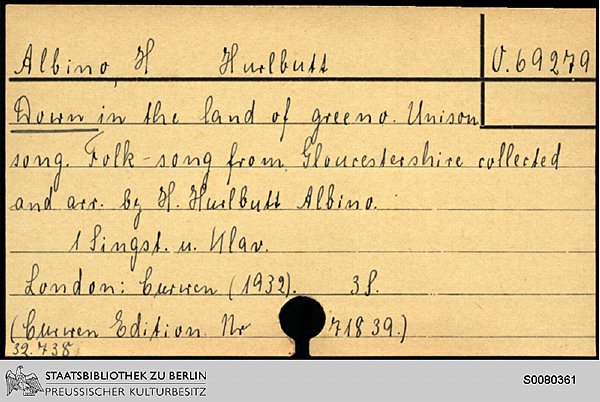 Albino, H Hurlbutt O. 69279
Down in the land of greeno. Unison
song. Folk-song from Gloucestershire collected
and arr. by H. Hurlbutt Albino.
1 Singst. u. Klav.
London: Curwen (1932). 3 S.
(Curwen Edition. Nr 71839.)
32.738
STAATSBIBLIOTHEK ZU BERLIN
PREUSSISCHER KULTURBESITZ
S0080361